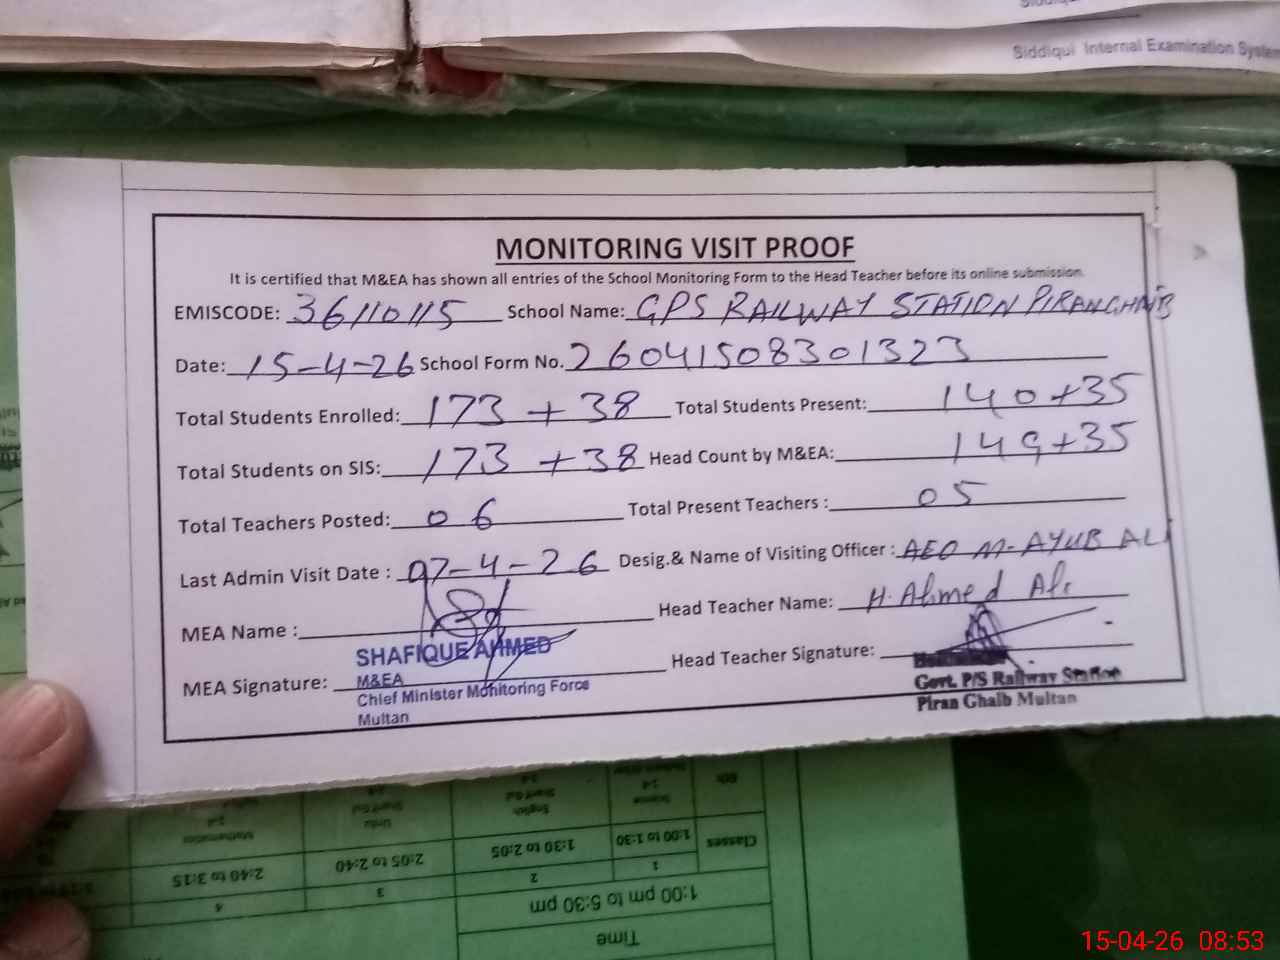 Siddiqui Internal Examination System
MONITORING VISIT PROOF
It is certified that M&EA has shown all entries of the School Monitoring Form to the Head Teacher before its online submission.
EMISCODE: 36110115 School Name: GPS RAILWAY STATION PIRANGHAIB
Date: 15-4-26 School Form No. 26041508301323
Total Students Enrolled: 173 + 38 Total Students Present: 140+35
Total Students on SIS: 173 + 38 Head Count by M&EA: 149+35
Total Teachers Posted: 06 Total Present Teachers : 05
Last Admin Visit Date : 07-4-26 Desig.& Name of Visiting Officer : AEO M-AYUB ALI
MEA Name : Head Teacher Name: H. Ahmed Ali
SHAFIQUE AHMED
MEA Signature: M&EA Head Teacher Signature:
Chief Minister Monitoring Force
Multan
Govt. P/S Railway Station
Piran Ghaib Multan
Time
1:00 pm to 5:30 pm
1 2 3 4
Classes 1:00 to 1:30 1:30 to 2:05 2:05 to 2:40 2:40 to 3:15
6th Science English Urdu Mathematics
15-04-26 08:53